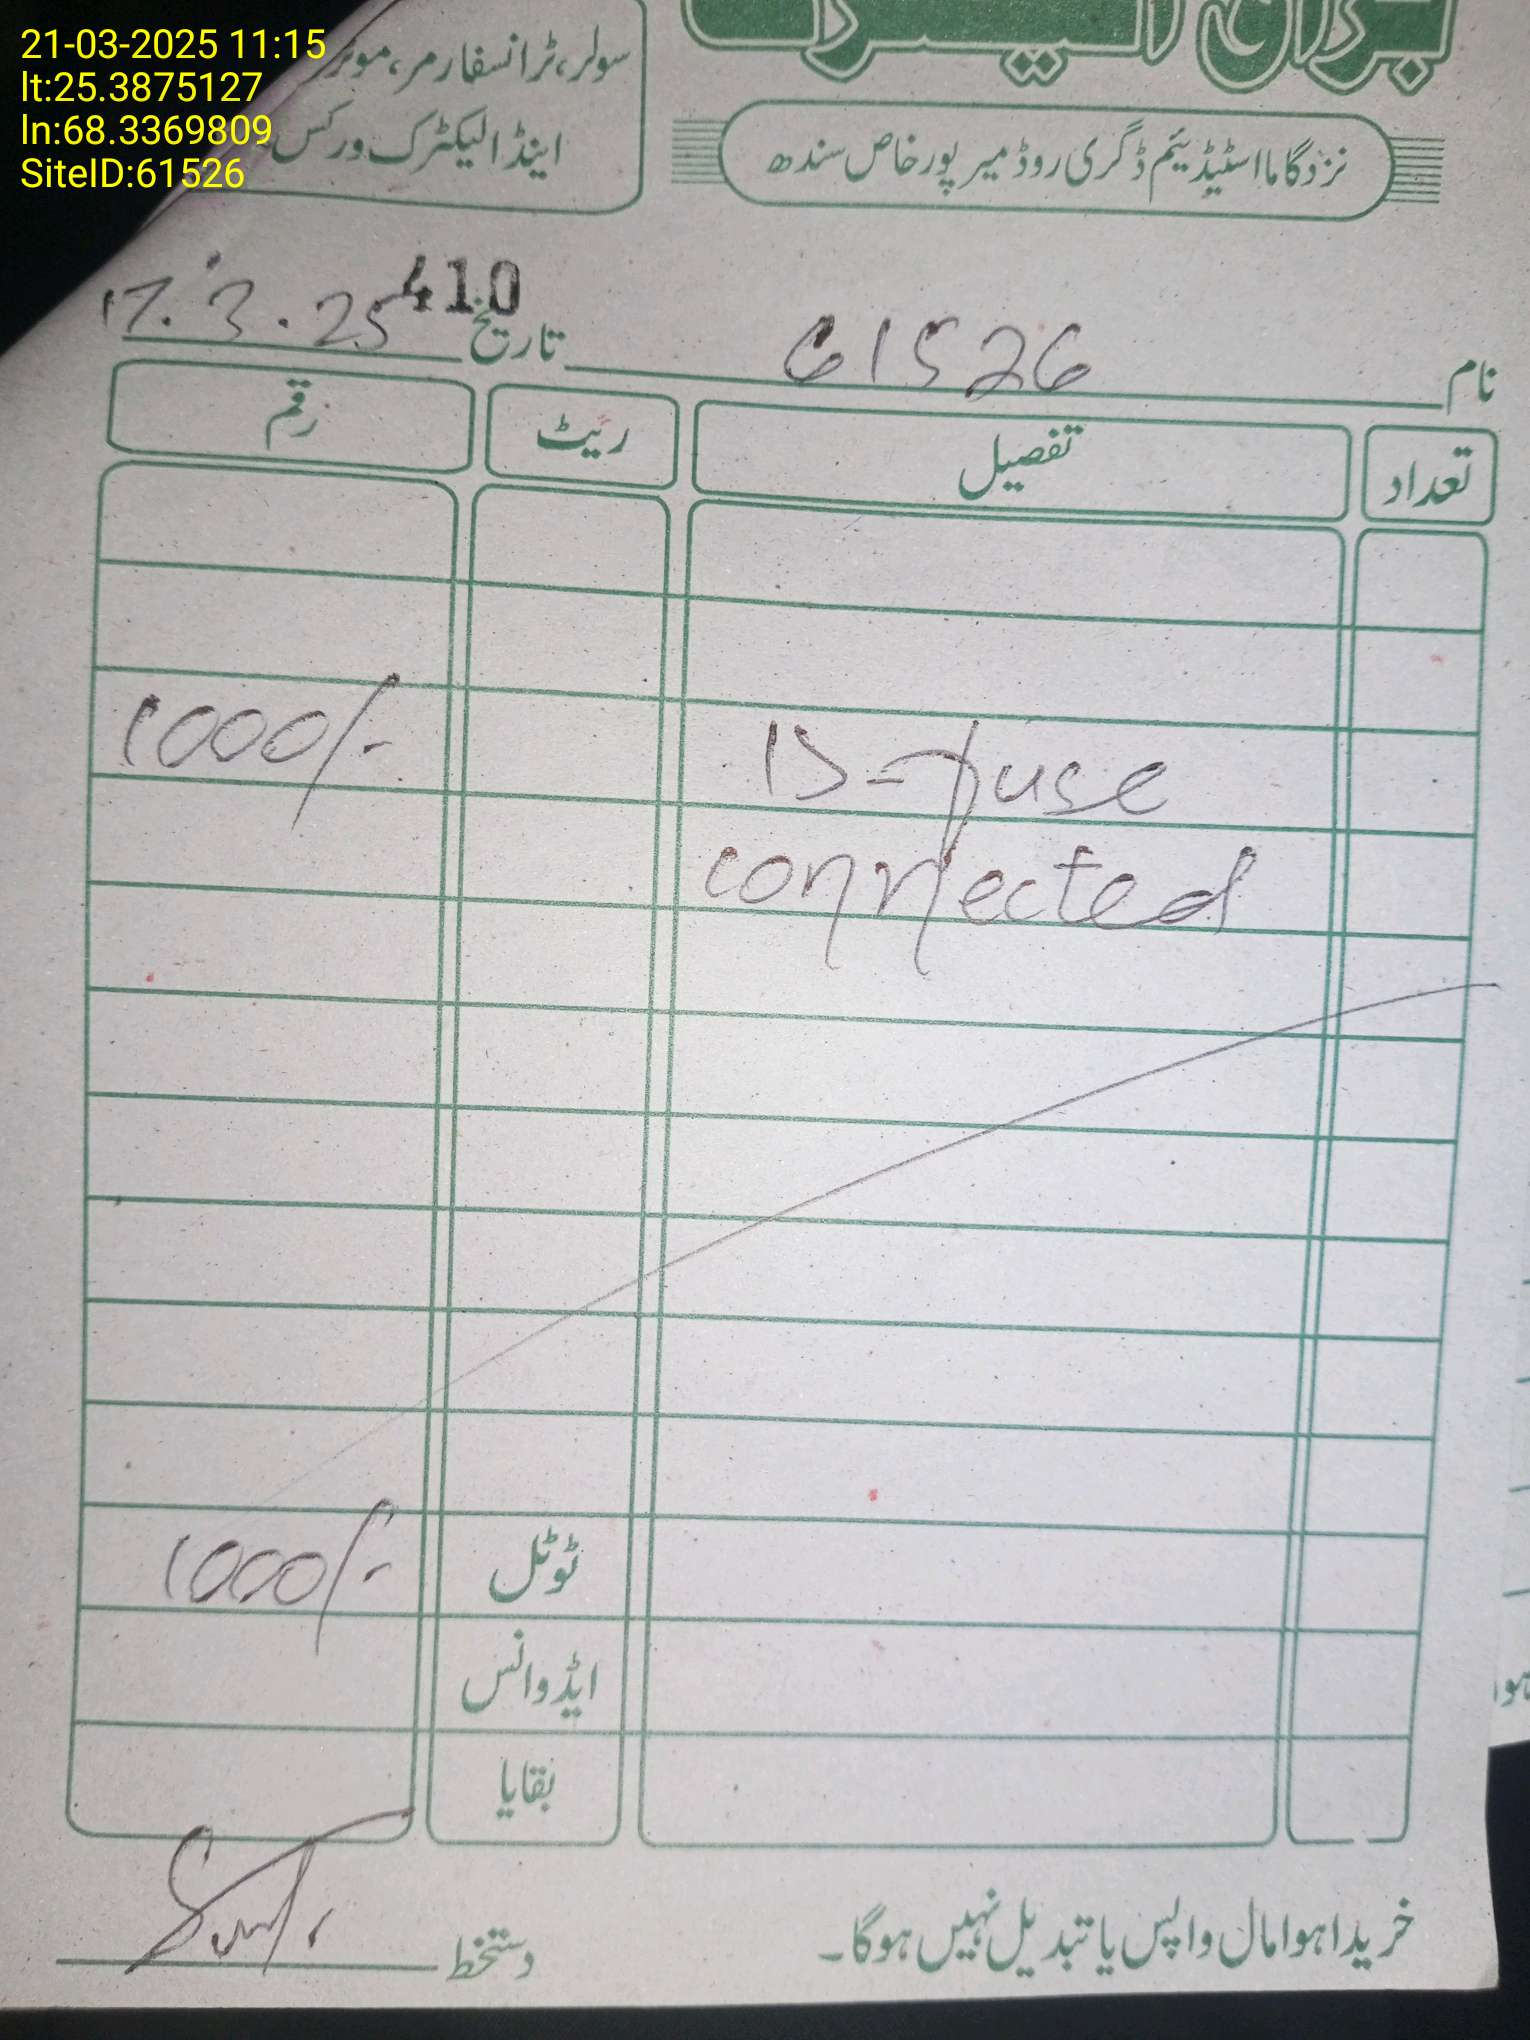 21-03-2025 11:15
lt:25.3875127
ln:68.3369809
SiteID:61526
سولر، ٹرانسفارمر، موٹر
اینڈ الیکٹرک ورکس
نزد گاما اسٹیڈیئم ڈگری روڈ میرپورخاص سندھ
410
نام 61526 تاریخ 17.3.25
تعداد تفصیل ریٹ رقم
D-fuse 1000/-
connected
ٹوٹل 1000/-
ایڈوانس
بقایا
خریدا ہوا مال واپس یا تبدیل نہیں ہوگا۔
دستخط